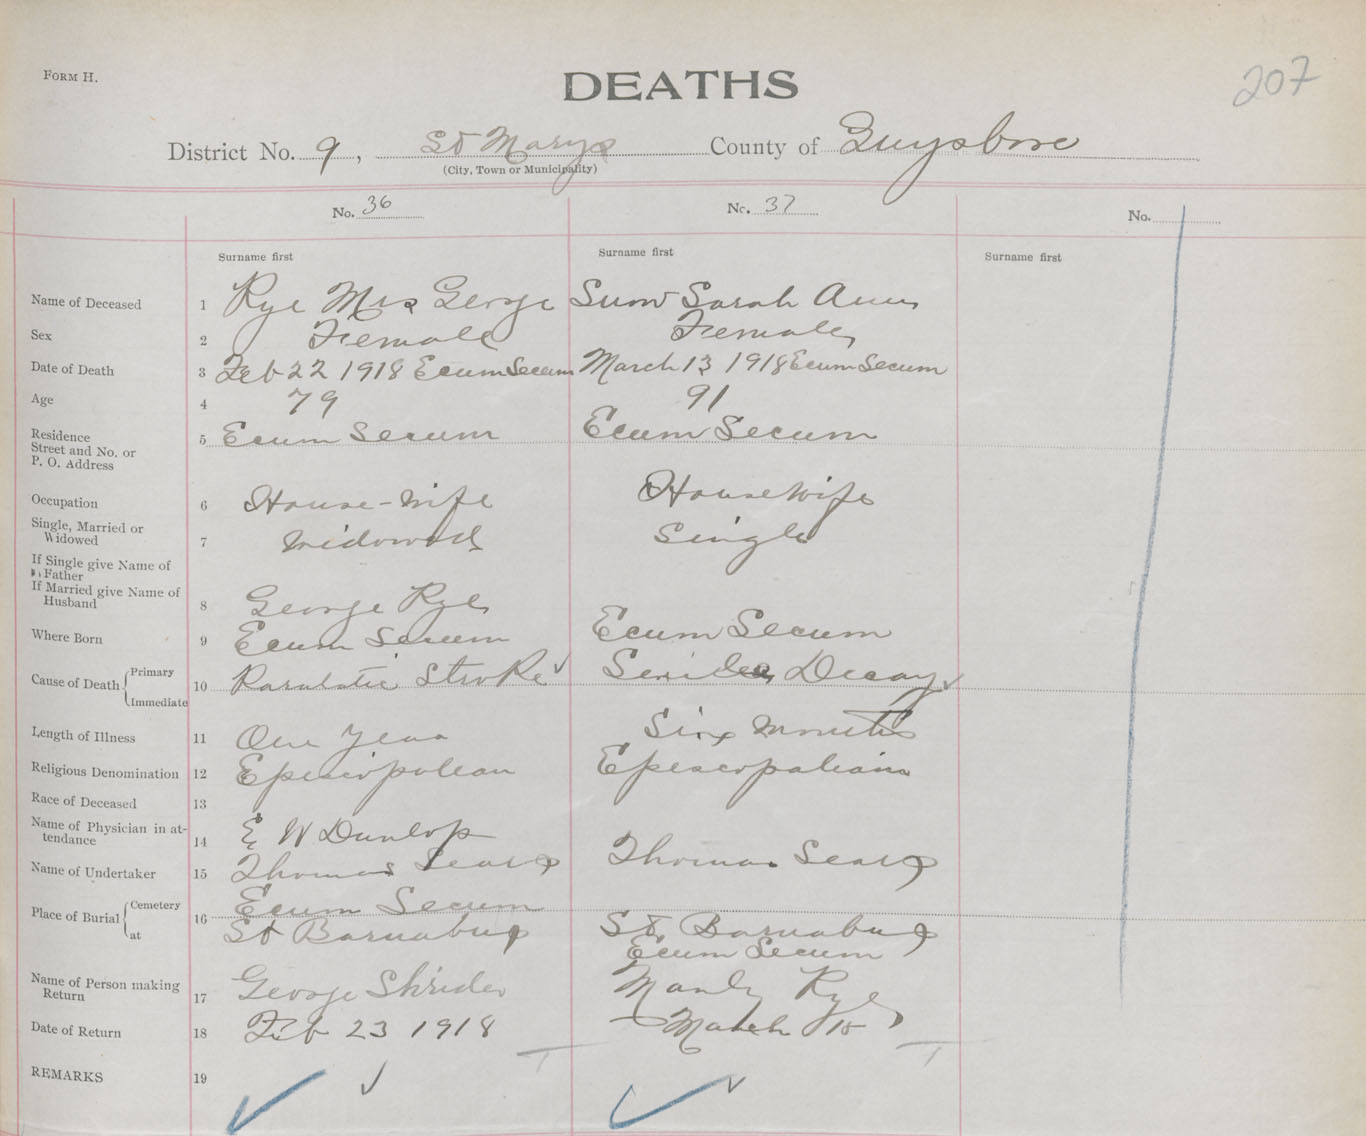 FORM H.
DEATHS
207
District No. 9, St Marys County of Guysboro
(City, Town or Municipality)
No. 36 No. 37 No.
Surname first Surname first Surname first
Name of Deceased 1 Rye Mrs George Snow Sarah Ann
Sex 2 Female Female
Date of Death 3 Feb 22 1918 Ecum Secum March 13 1918 Ecum Secum
Age 4 79 91
Residence
Street and No. or
P. O. Address
5 Ecum Secum Ecum Secum
Occupation 6 House-Wife House Wife
Single, Married or
Widowed
7 Widowed Single
If Single give Name of
Father
If Married give Name of
Husband
8 George Rye
Where Born 9 Ecum Secum Ecum Secum
Cause of Death Primary
Immediate
10 Paralatic Stroke Senile Decay
Length of Illness 11 One Year Six Months
Religious Denomination 12 Episcopolean Episcopalian
Race of Deceased 13
Name of Physician in at-
tendance
14 E W Dunlop
Name of Undertaker 15 Thomas Sears Thomas Sears
Place of Burial Cemetery
at
16 Ecum Secum
St Barnabus St. Barnabus
Ecum Secum
Name of Person making
Return
17 George Shrider Manly Rye
Date of Return 18 Feb 23 1918 March 15
REMARKS 19